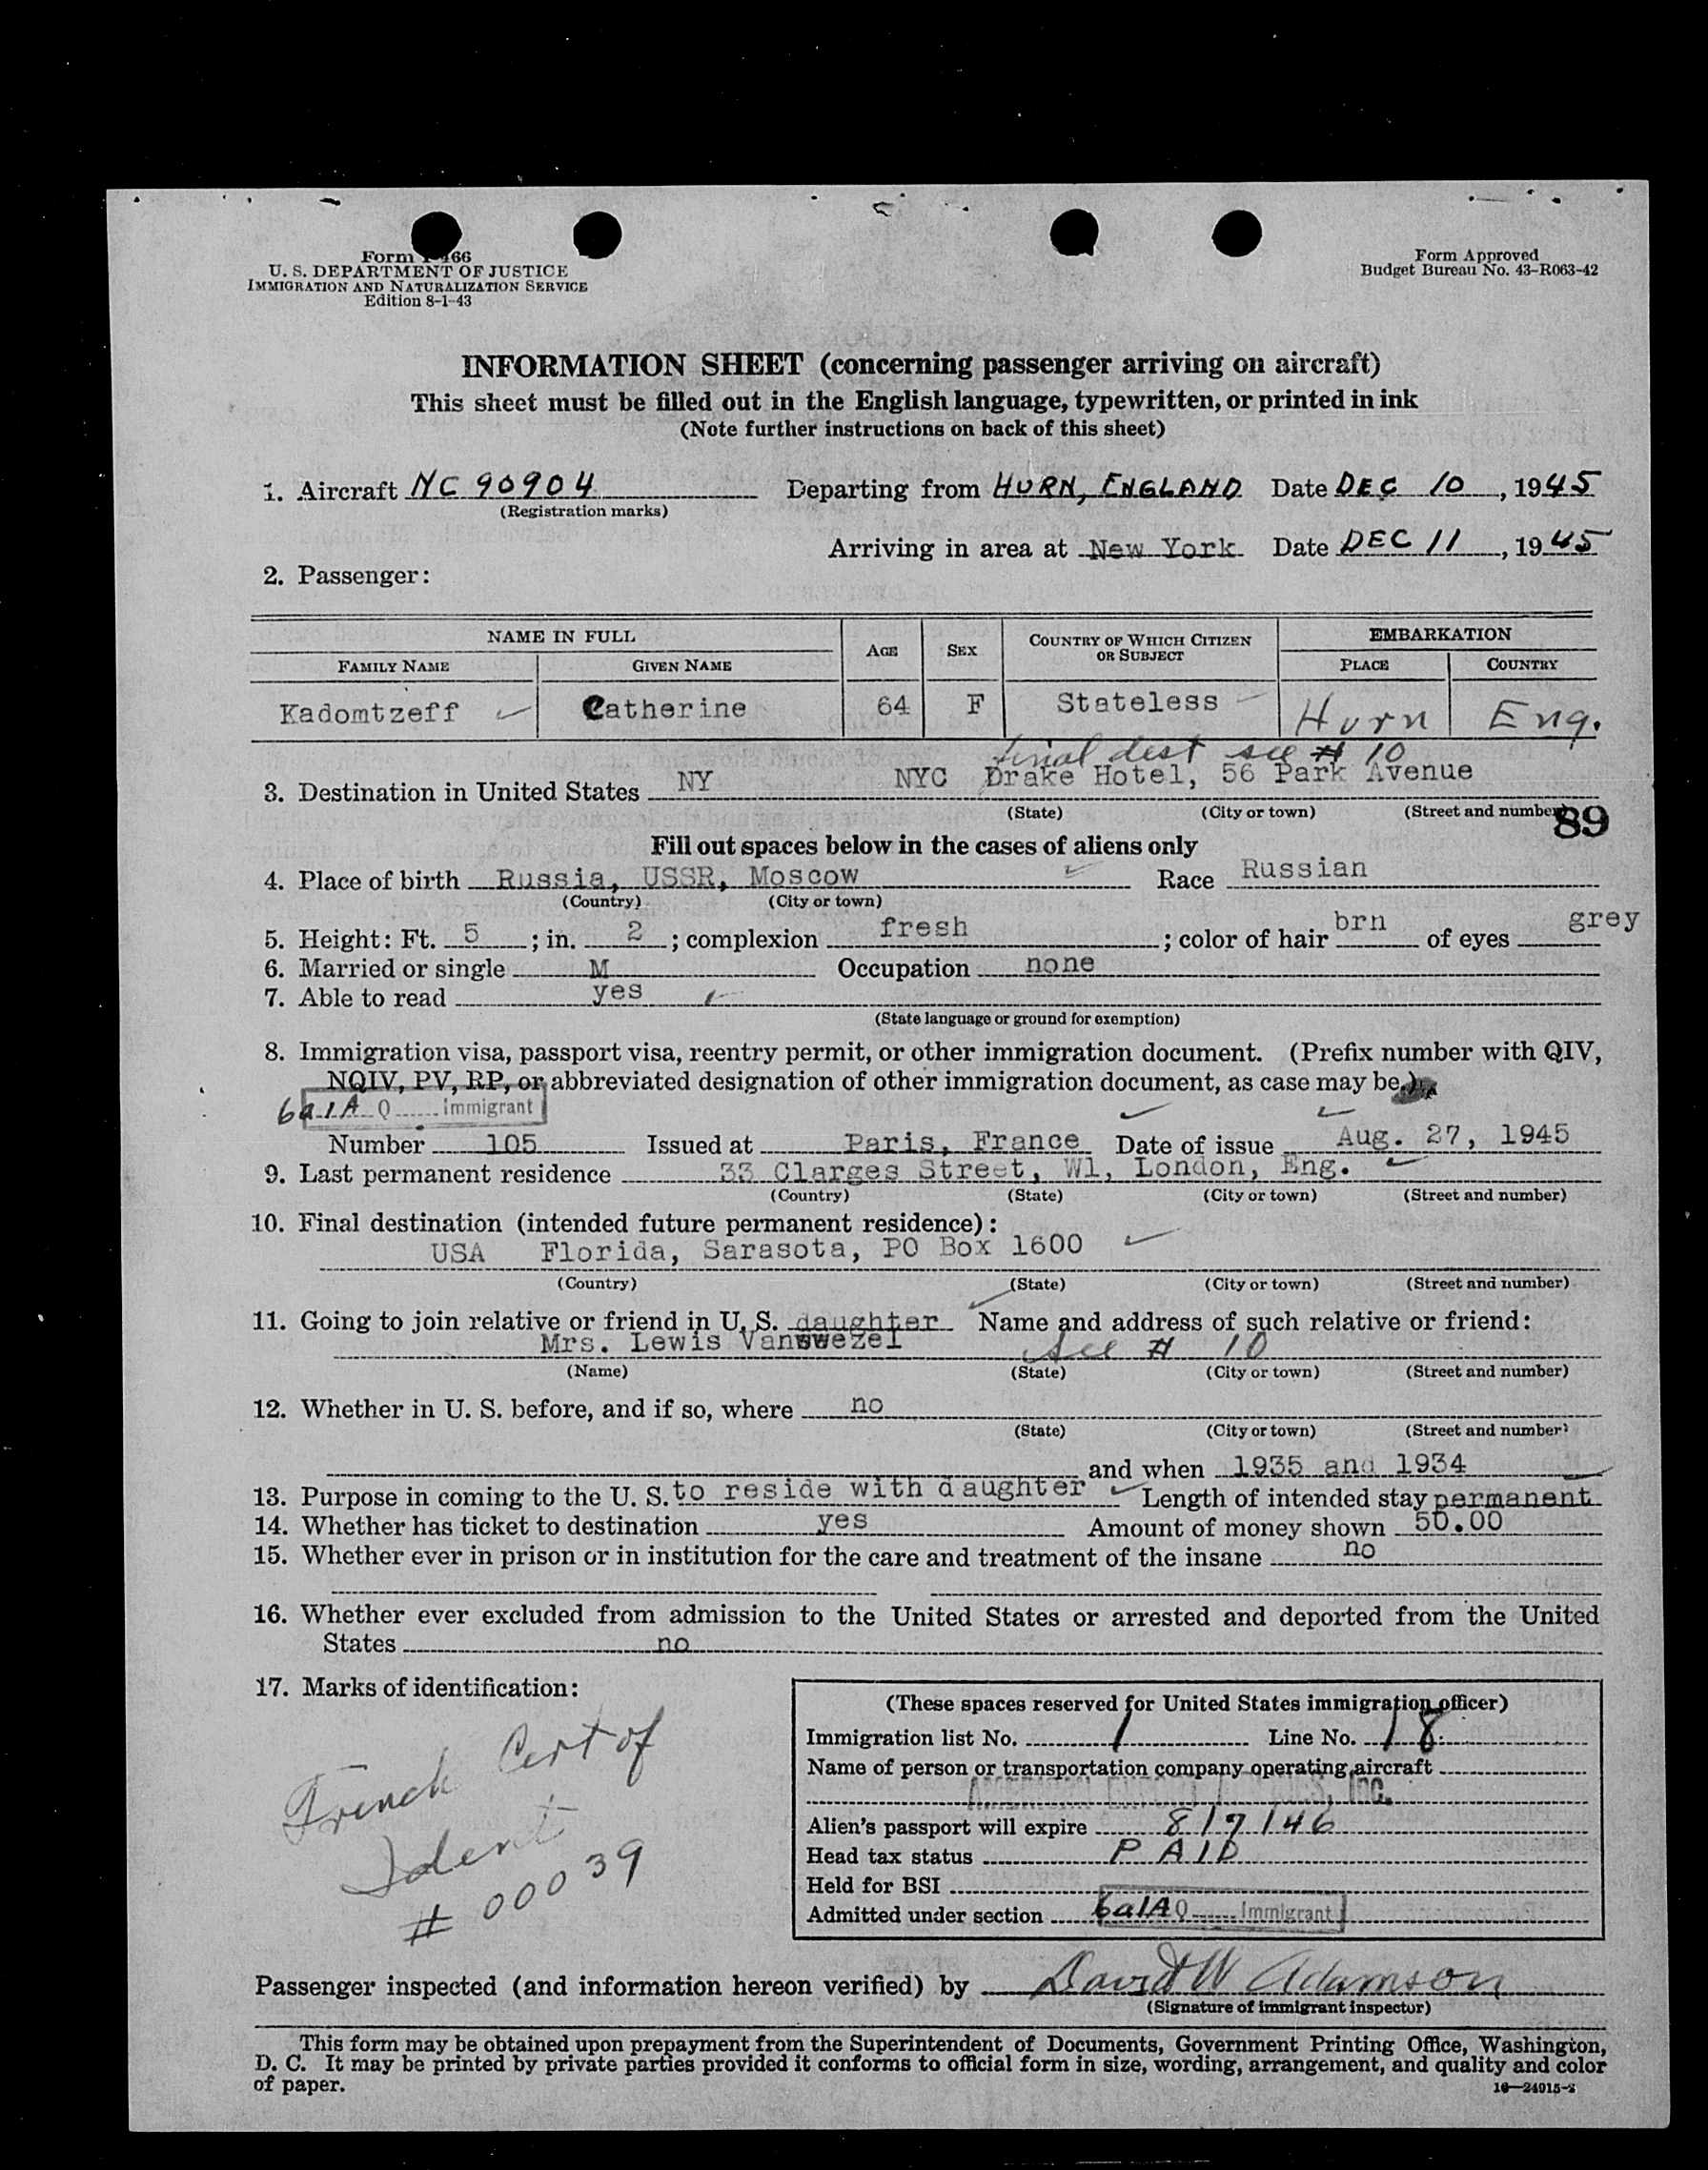 Form 466
U. S. DEPARTMENT OF JUSTICE
IMMIGRATION AND NATURALIZATION SERVICE
Edition 8-1-43
Form Approved
Budget Bureau No. 43-R063-42
INFORMATION SHEET (concerning passenger arriving on aircraft)
This sheet must be filled out in the English language, typewritten, or printed in ink
(Note further instructions on back of this sheet)
1. Aircraft NC 90904 Departing from HURN, ENGLAND Date DEC 10, 1945
(Registration marks)
Arriving in area at New York Date DEC 11, 1945
2. Passenger:
NAME IN FULL AGE SEX COUNTRY OF WHICH CITIZEN OR SUBJECT EMBARKATION
FAMILY NAME GIVEN NAME PLACE COUNTRY
Kadomtzeff Catherine 64 F Stateless Hurn Eng.
final dest see # 10
3. Destination in United States NY NYC Drake Hotel, 56 Park Avenue
(State) (City or town) (Street and number)
89
Fill out spaces below in the cases of aliens only
4. Place of birth Russia, USSR, Moscow Race Russian
(Country) (City or town)
5. Height: Ft. 5; in. 2; complexion fresh; color of hair brn of eyes grey
6. Married or single M Occupation none
7. Able to read yes
(State language or ground for exemption)
8. Immigration visa, passport visa, reentry permit, or other immigration document. (Prefix number with QIV,
NQIV, PV, RP, or abbreviated designation of other immigration document, as case may be.)
6a1A Q Immigrant
Number 105 Issued at Paris, France Date of issue Aug. 27, 1945
9. Last permanent residence 33 Clarges Street, W1, London, Eng.
(Country) (State) (City or town) (Street and number)
10. Final destination (intended future permanent residence):
USA Florida, Sarasota, PO Box 1600
(Country) (State) (City or town) (Street and number)
11. Going to join relative or friend in U. S. daughter Name and address of such relative or friend:
Mrs. Lewis Vanswezel See # 10
(Name) (State) (City or town) (Street and number)
12. Whether in U. S. before, and if so, where no
(State) (City or town) (Street and number)
and when 1935 and 1934
13. Purpose in coming to the U. S. to reside with daughter Length of intended stay permanent
14. Whether has ticket to destination yes Amount of money shown 50.00
15. Whether ever in prison or in institution for the care and treatment of the insane no
16. Whether ever excluded from admission to the United States or arrested and deported from the United
States no
17. Marks of identification:
French Cert of
Ident
# 00039
(These spaces reserved for United States immigration officer)
Immigration list No. 1 Line No. 18
Name of person or transportation company operating aircraft
Inc.
Alien's passport will expire 8/7/46
Head tax status PAID
Held for BSI
Admitted under section 6a1A Q Immigrant
Passenger inspected (and information hereon verified) by David W Adamson
(Signature of immigrant inspector)
This form may be obtained upon prepayment from the Superintendent of Documents, Government Printing Office, Washington,
D. C. It may be printed by private parties provided it conforms to official form in size, wording, arrangement, and quality and color
of paper.
16—24915-2